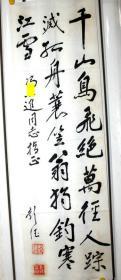 千山鳥飛絕萬徑人踪
滅孤舟蓑笠翁獨釣寒
江雪
冯 進同志指正